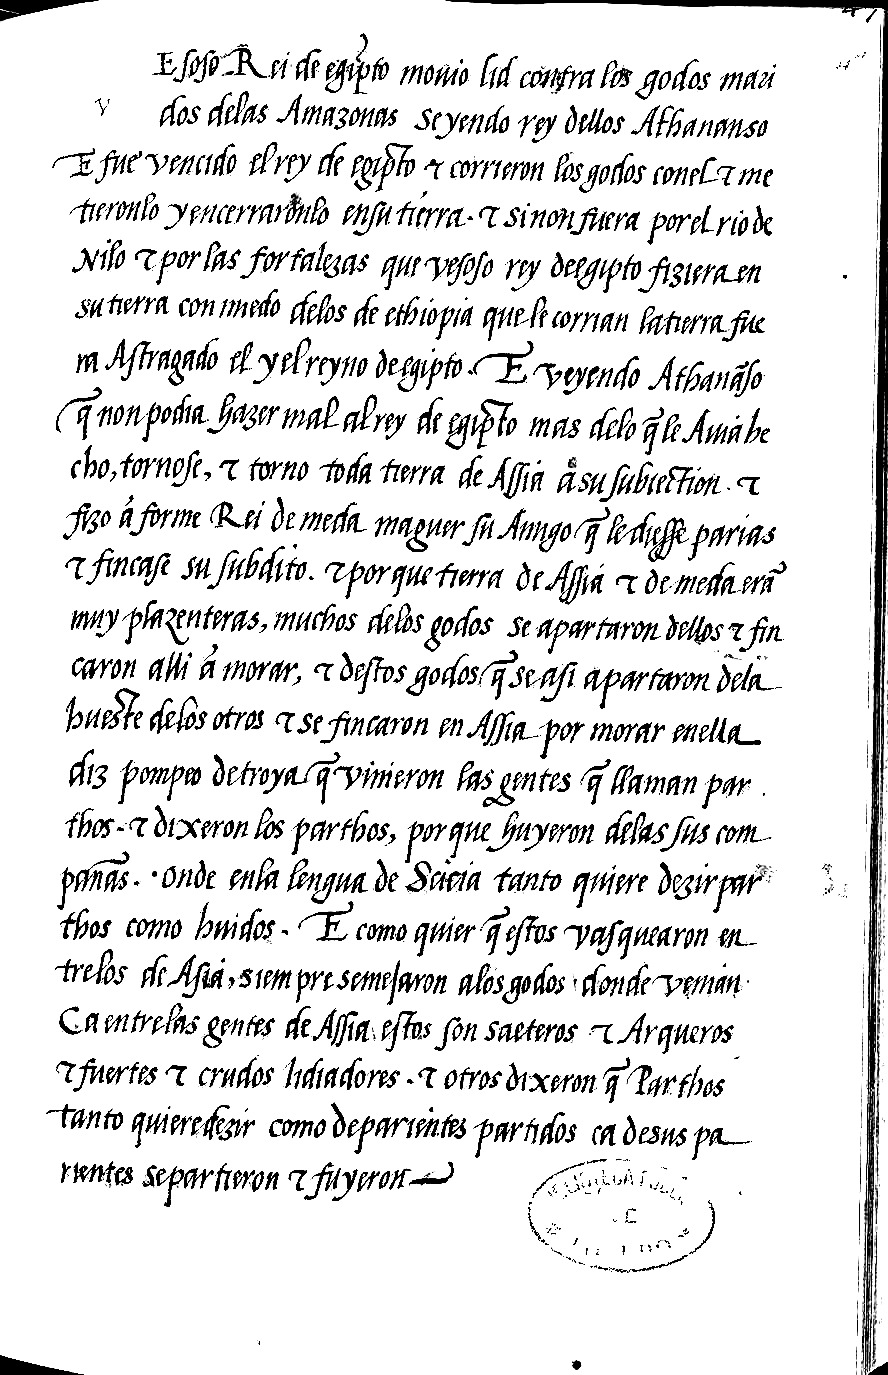 47
v Esoso Rei de egipto mouio lid contra los godos mari
dos delas Amazonas seyendo rey dellos Athananso
E fue vencido el rey de egipto τ corrieron los godos conel τ me
tieronlo y encerraronlo ensu tierra. τ sinon fuera porel rio de
Nilo τ por las fortalezas que vesoso rey deegipto fiziera en
su tierra con miedo delos de ethiopia que le corrian la tierra fue
ra Astragado el y el reyno de egipto. E veyendo Athanãso
q̃ non podia hazer mal al rey de egipto mas delo q̃ le Auia he
cho, tornose, τ torno toda tierra de Assia á su subiection. τ
fizo á forme Rei de meda maguer su Amigo q̃ le diesse parias
τ fincase su subdito. τ porque tierra de Assia τ de meda erã
muy plazenteras, muchos delos godos se apartaron dellos τ fin
caron alli á morar, τ destos godos q̃ se asi apartaron dela
hueste delos otros τ se fincaron en Assia por morar enella
diz pompeo de troya q̃ vinieron las gentes q̃ llaman par
thos. τ dixeron los parthos, porque huyeron delas sus com
pañas. onde enla lengua de Scicia tanto quiere dezir par
thos como huidos. E como quier q̃ estos vasquearon en
trelos de Asia, siempre semejaron alos godos donde venian.
Ca entrelas gentes de Assia estos son saeteros τ Arqueros
τ fuertes τ crudos lidiadores. τ otros dixeron q̃ Parthos
tanto quiere dezir como de parientes partidos ca de sus pa
rientes se partieron τ fuyeron